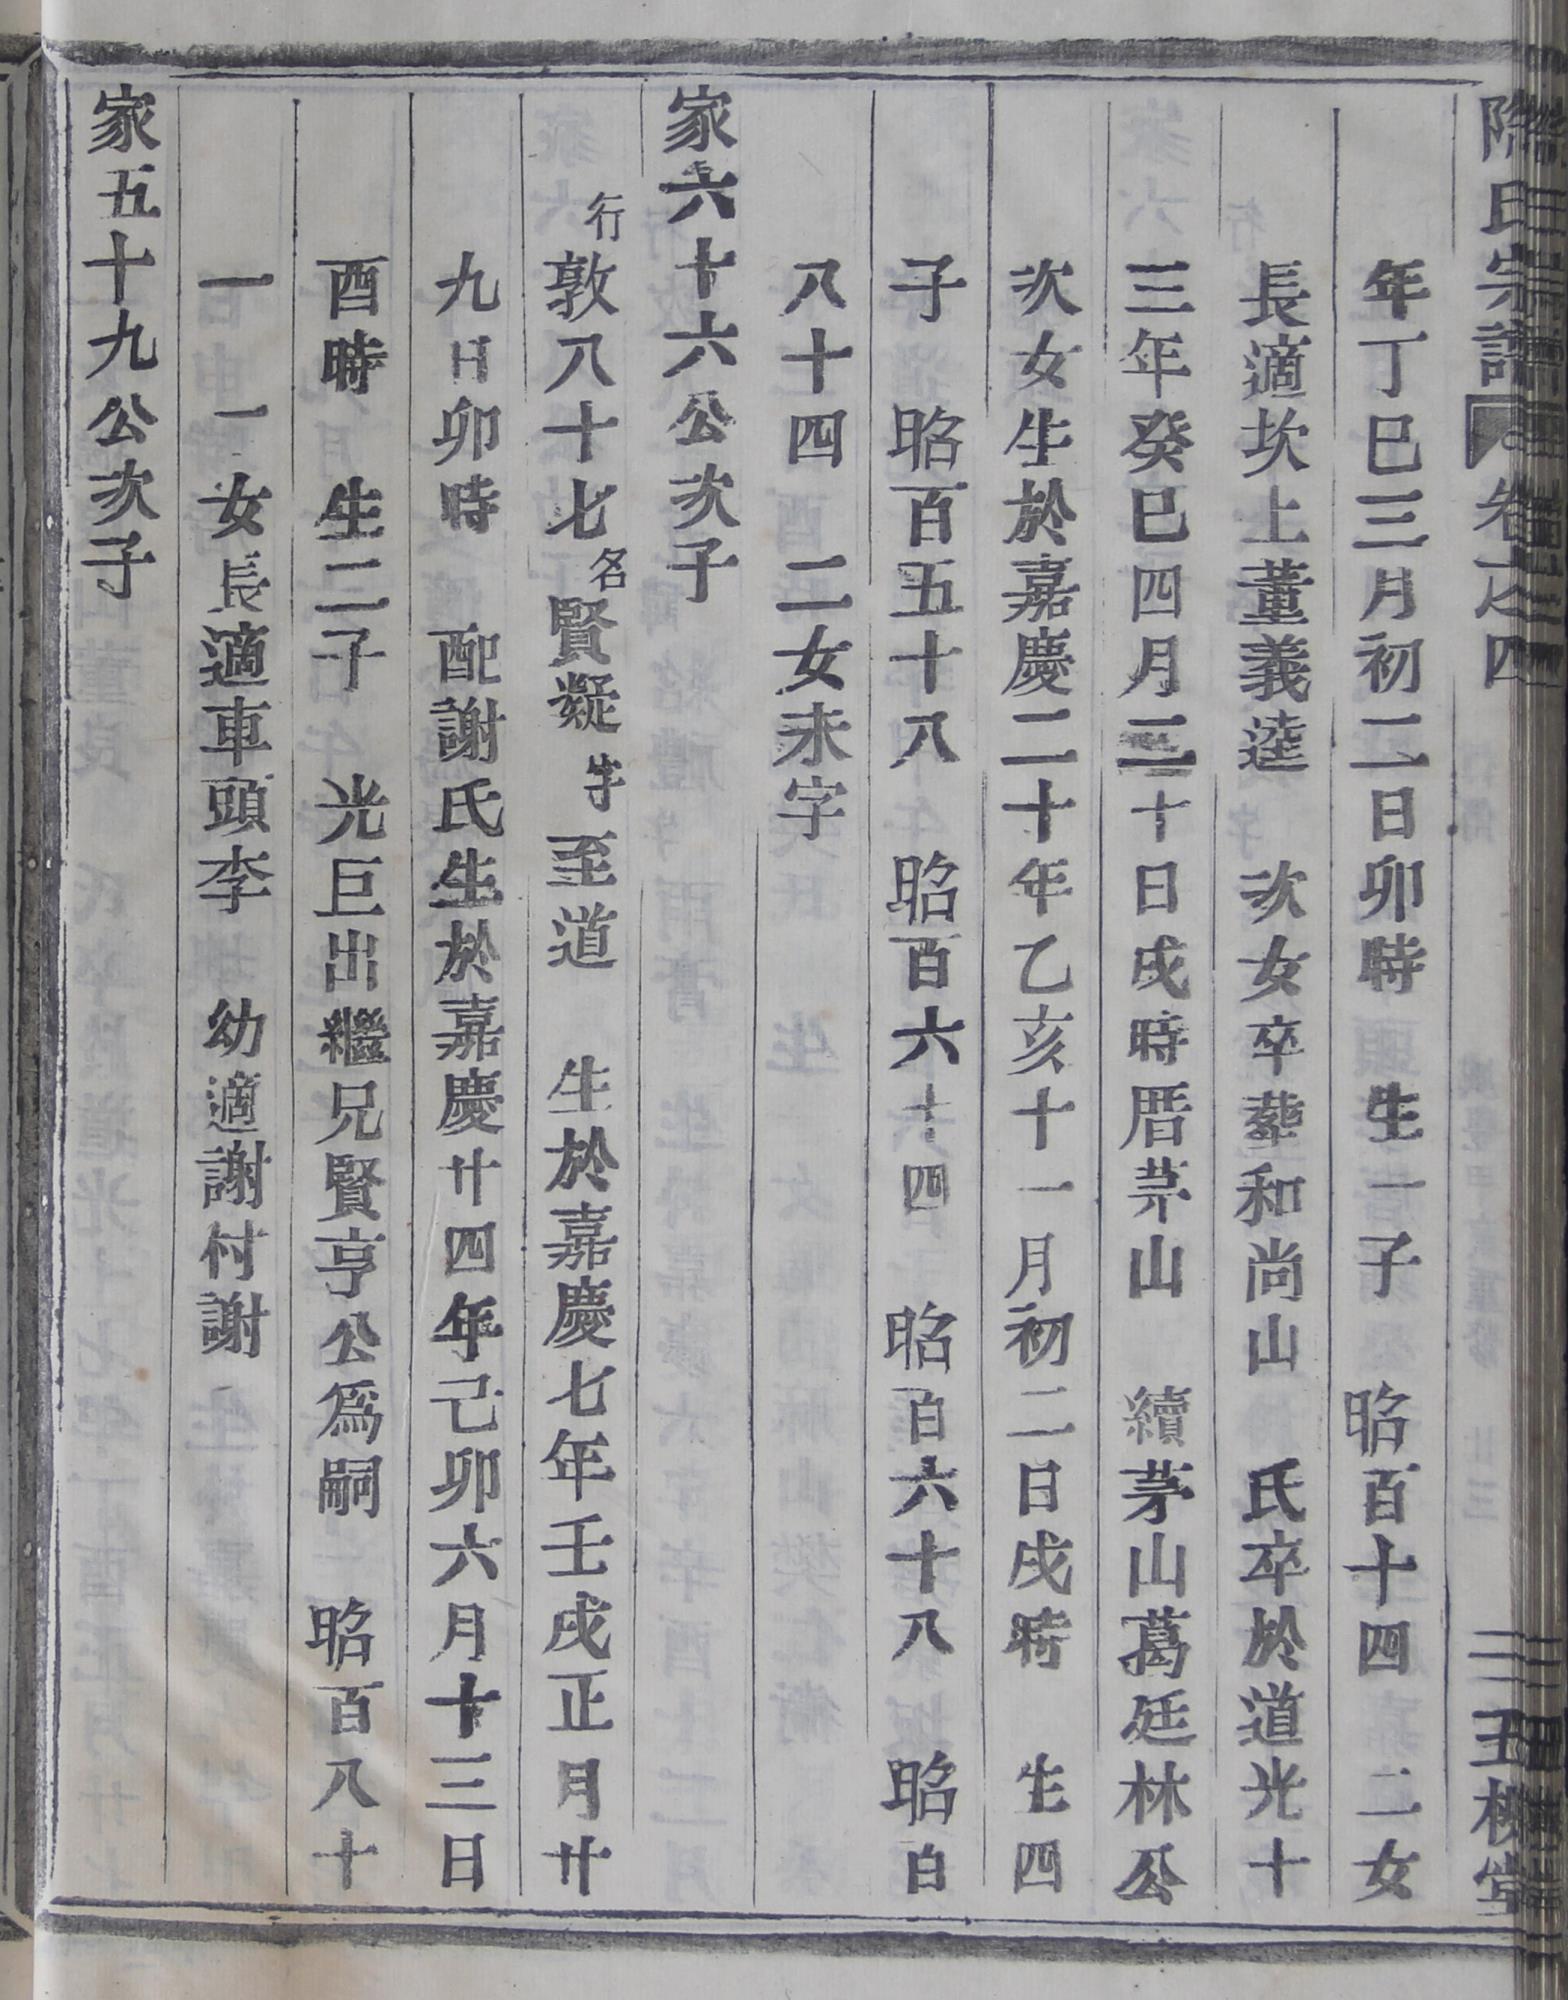 陳氏宗譜 卷之四 三玉樹堂
年丁巳三月初二日卯時 生一子 昭百十四 二女
長適坎上董義逵 次女卒葬和尚山 氏卒於道光十
三年癸巳四月三十日戌時厝茅山 續茅山葛廷林公
次女生於嘉慶二十年乙亥十一月初二日戌時 生四
子 昭百五十八 昭百六十四 昭百六十八 昭百
八十四 二女未字
家六十六公次子
行敦八十七名賢凝字至道 生於嘉慶七年壬戌正月廿
九日卯時 配謝氏生於嘉慶廿四年己卯六月十三日
酉時 生二子 光巨出繼兄賢亨公爲嗣 昭百八十
一 一女長適車頭李 幼適謝村謝
家五十九公次子